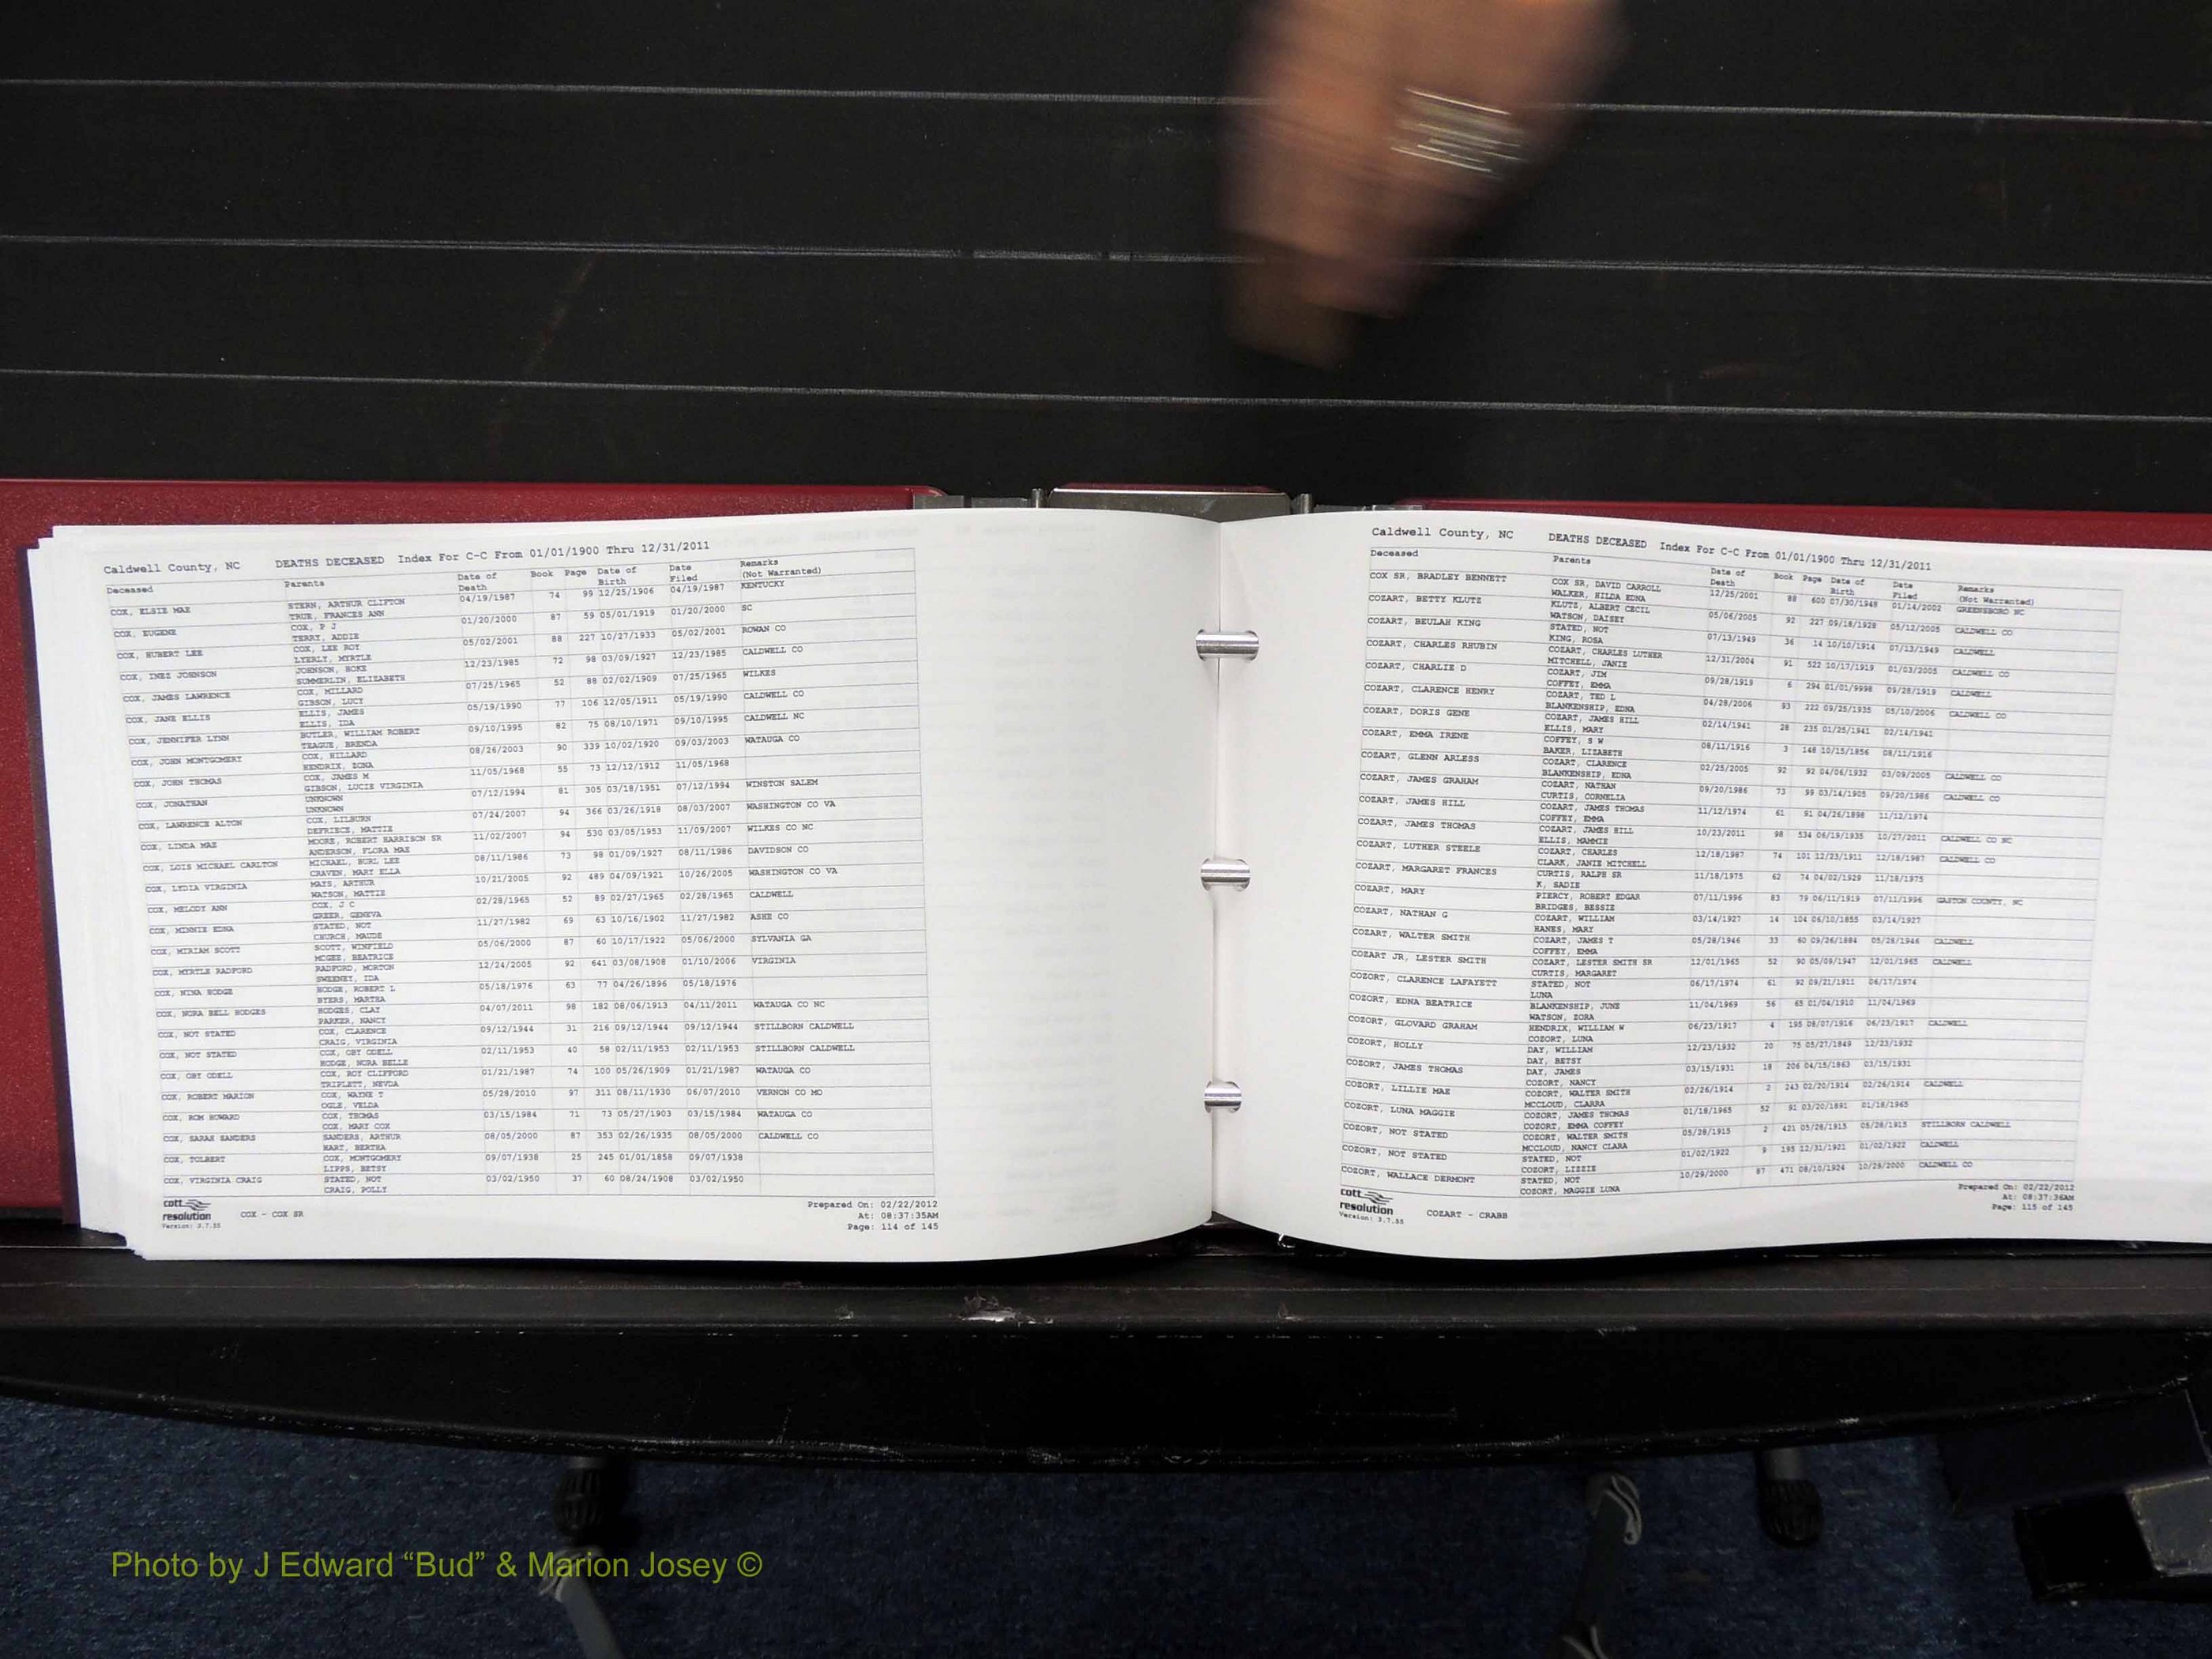 Caldwell County, NC DEATHS DECEASED Index For C-C From 01/01/1900 Thru 12/31/2011
Deceased Parents Date of Death Book Page Date of Birth Date Filed Remarks (Not Warranted)
COX, ELSIE MAE STERN, ARTHUR CLIFTON 04/19/1987 74 99 12/25/1906 04/19/1987 KENTUCKY
TRUE, FRANCES ANN
COX, EUGENE COX, P J 01/20/2000 87 59 05/01/1919 01/20/2000 SC
TERRY, ADDIE
COX, HUBERT LEE COX, LEE ROY 05/02/2001 88 227 10/27/1933 05/02/2001 ROWAN CO
LYERLY, MYRTLE
COX, INEZ JOHNSON JOHNSON, HOKE 12/23/1985 72 98 03/09/1927 12/23/1985 CALDWELL CO
SUMMERLIN, ELIZABETH
COX, JAMES LAWRENCE COX, MILLARD 07/25/1965 52 88 02/02/1909 07/25/1965 WILKES
GIBSON, LUCY
COX, JANE ELLIS ELLIS, JAMES 05/19/1990 77 106 12/05/1911 05/19/1990 CALDWELL CO
ELLIS, IDA
COX, JENNIFER LYNN BUTLER, WILLIAM ROBERT 09/10/1995 82 75 08/10/1971 09/10/1995 CALDWELL NC
TEAGUE, BRENDA
COX, JOHN MONTGOMERY COX, HILLARD 08/26/2003 90 339 10/02/1920 09/03/2003 WATAUGA CO
HENDRIX, ZONA
COX, JOHN THOMAS COX, JAMES M 11/05/1968 55 73 12/12/1912 11/05/1968
GIBSON, LUCIE VIRGINIA
COX, JONATHAN UNKNOWN 07/12/1994 81 305 03/18/1951 07/12/1994 WINSTON SALEM
UNKNOWN
COX, LAWRENCE ALTON COX, LILBURN 07/24/2007 94 366 03/26/1918 08/03/2007 WASHINGTON CO VA
DEFRIECE, MATTIE
COX, LINDA MAE MOORE, ROBERT HARRISON SR 11/02/2007 94 530 03/05/1953 11/09/2007 WILKES CO NC
ANDERSON, FLORA MAE
COX, LOIS MICHAEL CARLTON MICHAEL, BURL LEE 08/11/1986 73 98 01/09/1927 08/11/1986 DAVIDSON CO
CRAVEN, MARY ELLA
COX, LYDIA VIRGINIA MAYS, ARTHUR 10/21/2005 92 489 04/09/1921 10/26/2005 WASHINGTON CO VA
WATSON, MATTIE
COX, MELODY ANN COX, J C 02/28/1965 52 89 02/27/1965 02/28/1965 CALDWELL
GREER, GENEVA
COX, MINNIE EDNA STATED, NOT 11/27/1982 69 63 10/16/1902 11/27/1982 ASHE CO
CHURCH, MAUDE
COX, MIRIAM SCOTT SCOTT, WINFIELD 05/06/2000 87 60 10/17/1922 05/06/2000 SYLVANIA GA
MCGEE, BEATRICE
COX, MYRTLE RADFORD RADFORD, MORTON 12/24/2005 92 641 03/08/1908 01/10/2006 VIRGINIA
SWEENEY, IDA
COX, NINA HODGE HODGE, ROBERT L 05/18/1976 63 77 04/26/1896 05/18/1976
BYERS, MARTHA
COX, NORA BELL HODGES HODGES, CLAY 04/07/2011 98 182 08/06/1913 04/11/2011 WATAUGA CO NC
PARKER, NANCY
COX, NOT STATED COX, CLARENCE 09/12/1944 31 216 09/12/1944 09/12/1944 STILLBORN CALDWELL
CRAIG, VIRGINIA
COX, NOT STATED COX, OBY ODELL 02/11/1953 40 58 02/11/1953 02/11/1953 STILLBORN CALDWELL
HODGE, NORA BELLE
COX, OBY ODELL COX, ROY CLIFFORD 01/21/1987 74 100 05/26/1909 01/21/1987 WATAUGA CO
TRIPLETT, NEVDA
COX, ROBERT MARION COX, WAYNE T 05/28/2010 97 311 08/11/1930 06/07/2010 VERNON CO MO
OGLE, VELDA
COX, ROM HOWARD COX, THOMAS 03/15/1984 71 73 05/27/1903 03/15/1984 WATAUGA CO
COX, MARY COX
COX, SARAH SANDERS SANDERS, ARTHUR 08/05/2000 87 353 02/26/1935 08/05/2000 CALDWELL CO
HART, BERTHA
COX, TOLBERT COX, MONTGOMERY 09/07/1938 25 245 01/01/1858 09/07/1938
LIPPS, BETSY
COX, VIRGINIA CRAIG STATED, NOT 03/02/1950 37 60 08/24/1908 03/02/1950
CRAIG, POLLY
cott resolution Version: 3.7.55 COX - COX SR
Prepared On: 02/22/2012
At: 08:37:35AM
Page: 114 of 145
Caldwell County, NC DEATHS DECEASED Index For C-C From 01/01/1900 Thru 12/31/2011
Deceased Parents Date of Death Book Page Date of Birth Date Filed Remarks (Not Warranted)
COX SR, BRADLEY BENNETT COX SR, DAVID CARROLL 12/25/2001 88 600 07/30/1948 01/14/2002 GREENSBORO NC
WALKER, HILDA EDNA
COZART, BETTY KLUTZ KLUTZ, ALBERT CECIL 05/06/2005 92 227 09/18/1928 05/12/2005 CALDWELL CO
WATSON, DAISEY
COZART, BEULAH KING STATED, NOT 07/13/1949 36 14 10/10/1914 07/13/1949 CALDWELL
KING, ROSA
COZART, CHARLES RHUBIN COZART, CHARLES LUTHER 12/31/2004 91 522 10/17/1919 01/03/2005 CALDWELL CO
MITCHELL, JANIE
COZART, CHARLIE D COZART, JIM 09/28/1919 6 294 01/01/9998 09/28/1919 CALDWELL
COFFEY, EMMA
COZART, CLARENCE HENRY COZART, TED L 04/28/2006 93 222 09/25/1935 05/10/2006 CALDWELL CO
BLANKENSHIP, EDNA
COZART, DORIS GENE COZART, JAMES HILL 02/14/1941 28 235 01/25/1941 02/14/1941
ELLIS, MARY
COZART, EMMA IRENE COFFEY, S W 08/11/1916 3 148 10/15/1856 08/11/1916
BAKER, LIZABETH
COZART, GLENN ARLESS COZART, CLARENCE 02/25/2005 92 92 04/06/1932 03/09/2005 CALDWELL CO
BLANKENSHIP, EDNA
COZART, JAMES GRAHAM COZART, NATHAN 09/20/1986 73 99 03/14/1905 09/20/1986 CALDWELL CO
CURTIS, CORNELIA
COZART, JAMES HILL COZART, JAMES THOMAS 11/12/1974 61 91 04/26/1898 11/12/1974
COFFEY, EMMA
COZART, JAMES THOMAS COZART, JAMES HILL 10/23/2011 98 534 06/19/1935 10/27/2011 CALDWELL CO NC
ELLIS, MAMMIE
COZART, LUTHER STEELE COZART, CHARLES 12/18/1987 74 101 12/23/1911 12/18/1987 CALDWELL CO
CLARK, JANIE MITCHELL
COZART, MARGARET FRANCES CURTIS, RALPH SR 11/18/1975 62 74 04/02/1929 11/18/1975
K, SADIE
COZART, MARY PIERCY, ROBERT EDGAR 07/11/1996 83 79 06/11/1919 07/11/1996 GASTON COUNTY, NC
BRIDGES, BESSIE
COZART, NATHAN G COZART, WILLIAM 03/14/1927 14 104 06/10/1855 03/14/1927
HANES, MARY
COZART, WALTER SMITH COZART, JAMES T 05/28/1946 33 60 09/26/1884 05/28/1946 CALDWELL
COFFEY, EMMA
COZART JR, LESTER SMITH COZART, LESTER SMITH SR 12/01/1965 52 90 05/09/1947 12/01/1965 CALDWELL
CURTIS, MARGARET
COZORT, CLARENCE LAFAYETT STATED, NOT 06/17/1974 61 92 09/21/1911 06/17/1974
LUNA
COZORT, EDNA BEATRICE BLANKENSHIP, JUNE 11/04/1969 56 65 01/04/1910 11/04/1969
WATSON, ZORA
COZORT, GLOVARD GRAHAM HENDRIX, WILLIAM W 06/23/1917 4 195 08/07/1916 06/23/1917 CALDWELL
COZORT, LUNA
COZORT, HOLLY DAY, WILLIAM 12/23/1932 20 75 05/27/1849 12/23/1932
DAY, BETSY
COZORT, JAMES THOMAS DAY, JAMES 03/15/1931 18 206 04/15/1863 03/15/1931
COZORT, NANCY
COZORT, LILLIE MAE COZORT, WALTER SMITH 02/26/1914 2 243 02/20/1914 02/26/1914 CALDWELL
MCCLOUD, CLARRA
COZORT, LUNA MAGGIE COZORT, JAMES THOMAS 01/18/1965 52 91 03/20/1891 01/18/1965
COZORT, EMMA COFFEY
COZORT, NOT STATED COZORT, WALTER SMITH 05/28/1915 2 421 05/28/1915 05/28/1915 STILLBORN CALDWELL
MCCLOUD, NANCY CLARA
COZORT, NOT STATED STATED, NOT 01/02/1922 9 195 12/31/1921 01/02/1922 CALDWELL
COZORT, LIZZIE
COZORT, WALLACE DERMONT STATED, NOT 10/29/2000 87 471 08/10/1924 10/29/2000 CALDWELL CO
COZORT, MAGGIE LUNA
cott resolution Version: 3.7.55 COZART - CRABB
Prepared On: 02/22/2012
At: 08:37:36AM
Page: 115 of 145
Photo by J Edward “Bud” & Marion Josey ©